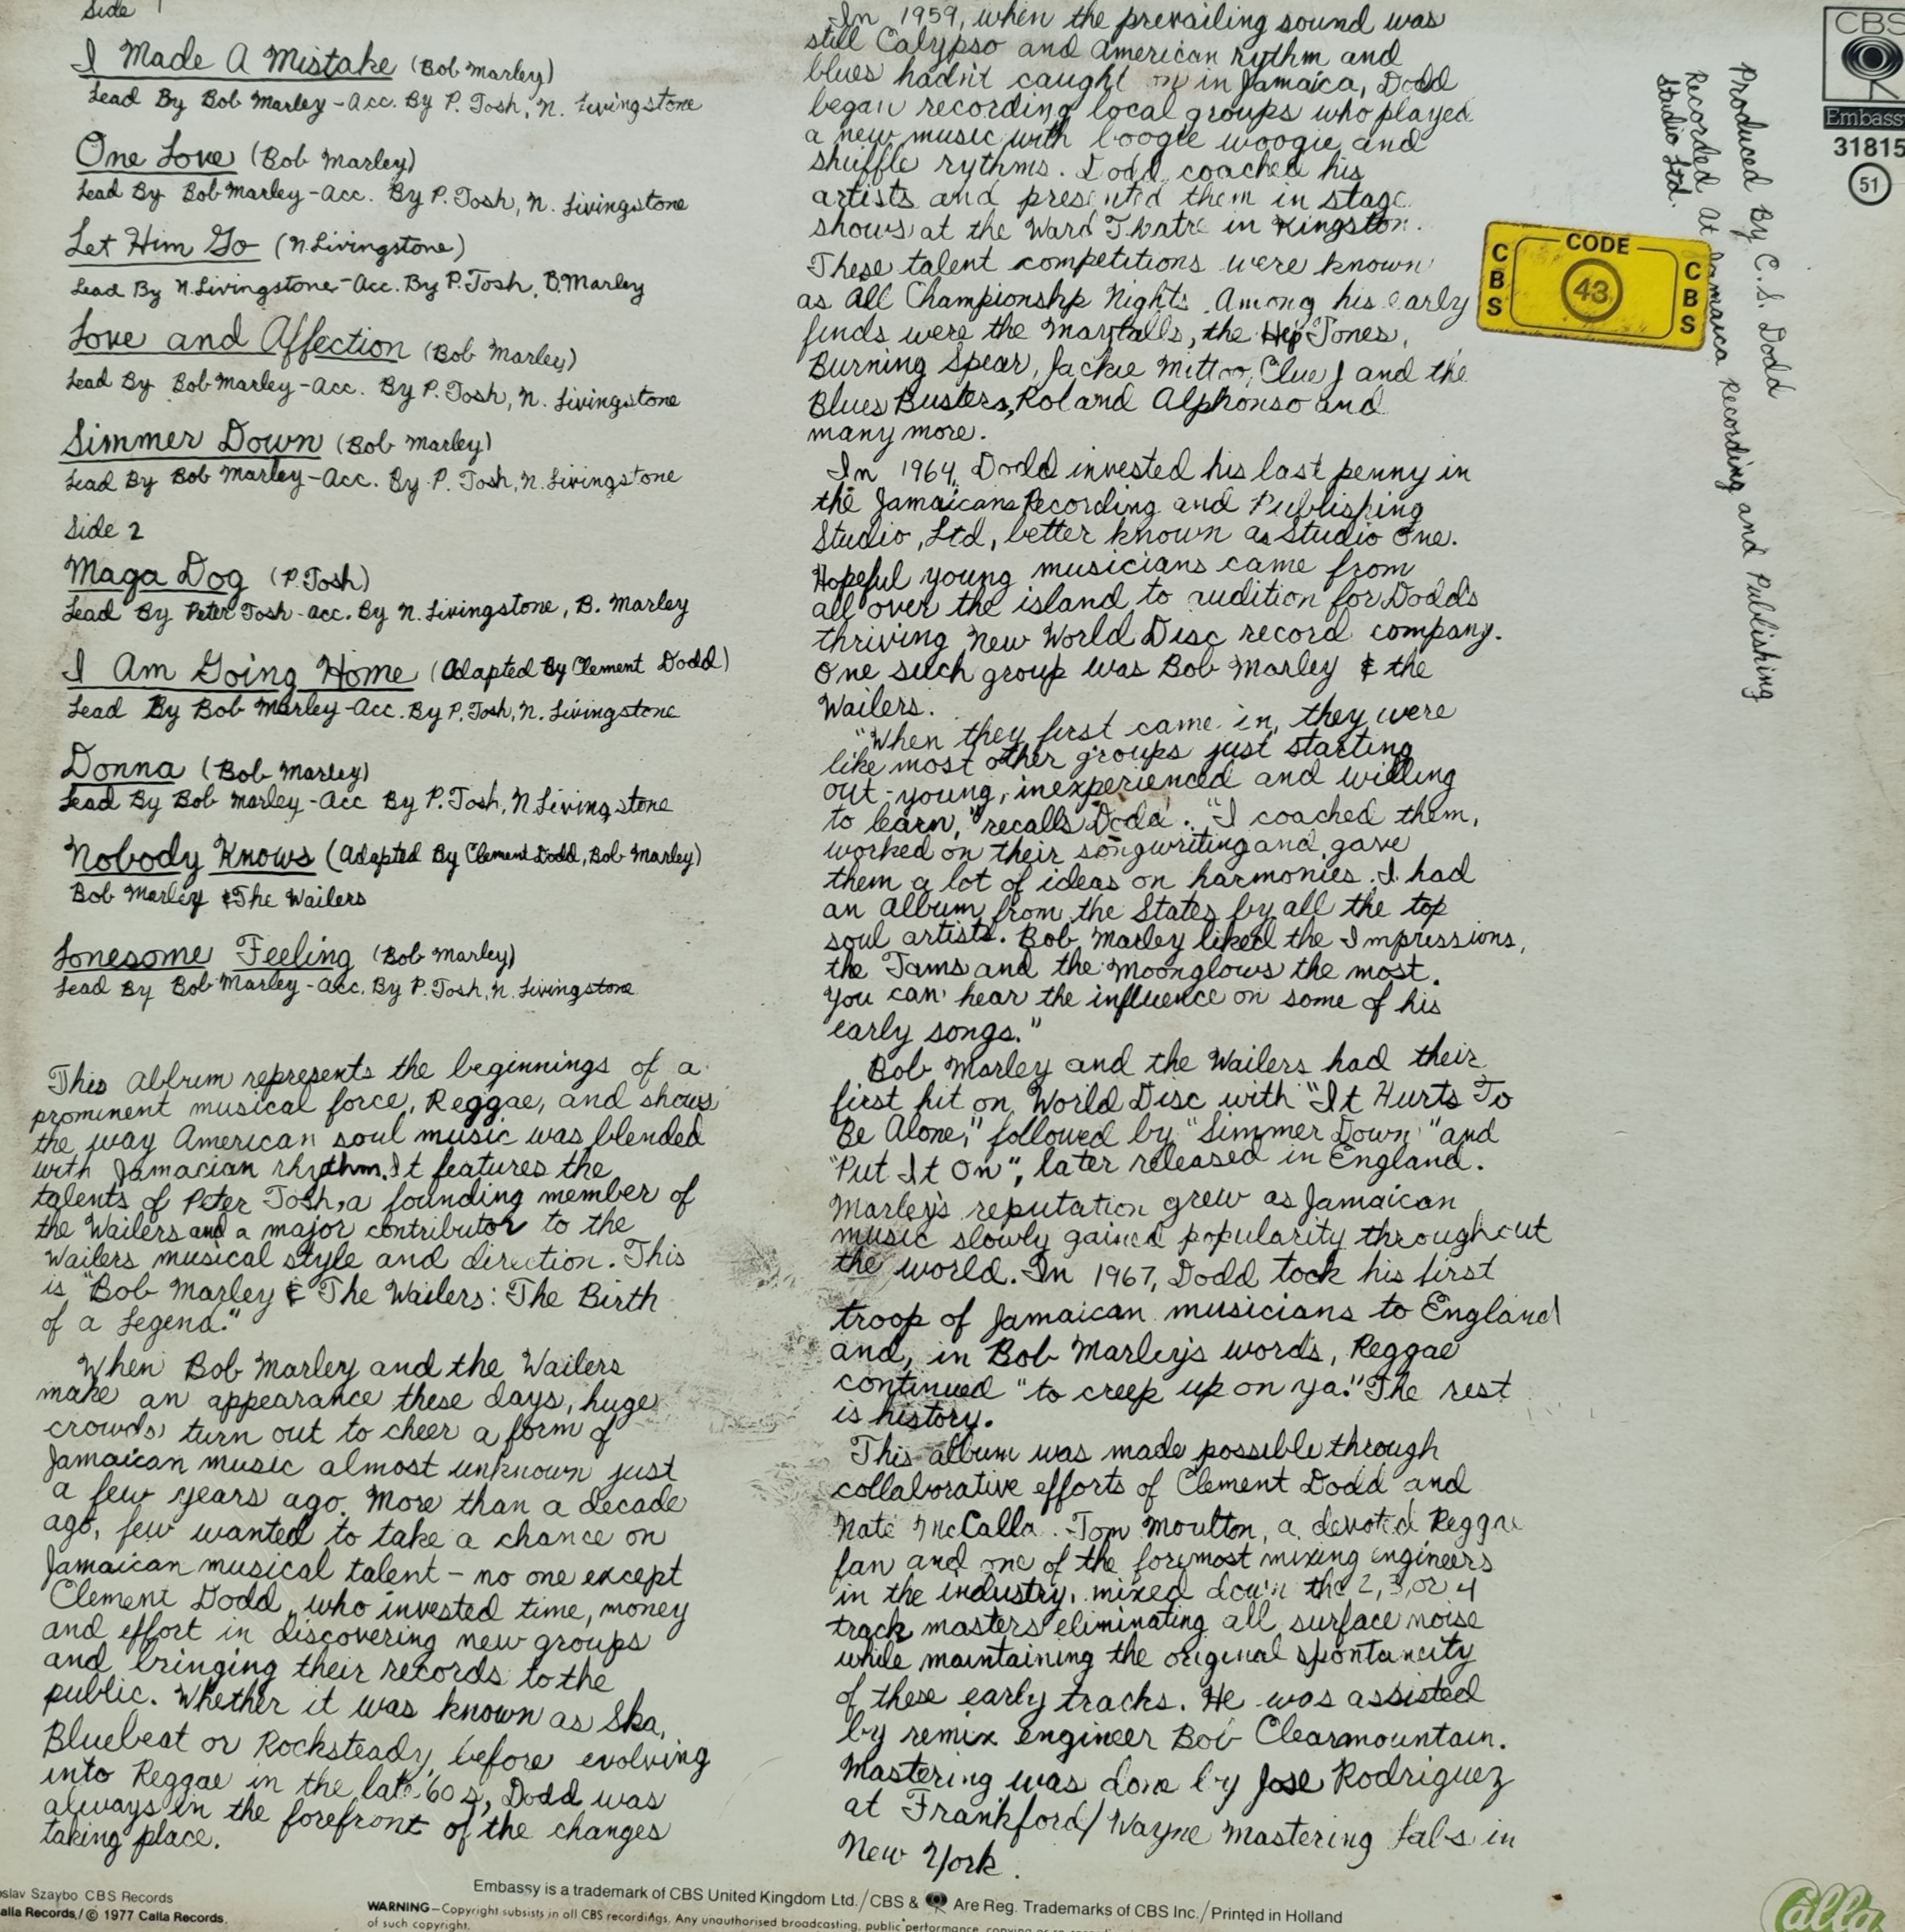 Side 1
I Made A Mistake (Bob Marley)
Lead By Bob Marley-Acc. By P. Tosh, N. Livingstone
One Love (Bob Marley)
Lead By Bob Marley-Acc. By P. Tosh, N. Livingstone
Let Him Go (N. Livingstone)
Lead By N. Livingstone-Acc. By P. Tosh, B. Marley
Love and Affection (Bob Marley)
Lead By Bob Marley-Acc. By P. Tosh, N. Livingstone
Simmer Down (Bob Marley)
Lead By Bob Marley-Acc. By P. Tosh, N. Livingstone
Side 2
Maga Dog (P. Tosh)
Lead By Peter Tosh-acc. By N. Livingstone, B. Marley
I Am Going Home (Adapted By Clement Dodd)
Lead By Bob Marley-Acc. By P. Tosh, N. Livingstone
Donna (Bob Marley)
Lead By Bob Marley-Acc By P. Tosh, N Livingstone
Nobody Knows (Adapted By Clement Dodd, Bob Marley)
Bob Marley & The Wailers
Lonesome Feeling (Bob Marley)
Lead By Bob Marley-Acc. By P. Tosh, N. Livingstone
This album represents the beginnings of a
prominent musical force, Reggae, and shows
the way American soul music was blended
with Jamacian rhythm. It features the
talents of Peter Tosh, a founding member of
the Wailers and a major contributor to the
Wailers musical style and direction. This
is "Bob Marley & The Wailers: The Birth
of a Legend."
When Bob Marley and the Wailers
make an appearance these days, huge
crowds turn out to cheer a form of
Jamaican music almost unknown just
a few years ago. More than a decade
ago, few wanted to take a chance on
Jamaican musical talent - no one except
Clement Dodd, who invested time, money
and effort in discovering new groups
and bringing their records to the
public. Whether it was known as Ska,
Bluebeat or Rocksteady, before evolving
into Reggae in the late 60s, Dodd was
always in the forefront of the changes
taking place.
In 1959, when the prevailing sound was
still Calypso and American rythm and
blues hadn't caught on in Jamaica, Dodd
began recording local groups who played
a new music with boogie woogie and
shuffle rythms. Dodd coached his
artists and presented them in stage
shows at the Ward Theatre in Kingston.
These talent competitions were known
as All Championship Nights. Among his early
finds were the Maytalls, the Hep Tones,
Burning Spear, Jackie Mittoo, Clue J and the
Blues Busters, Roland Alphonso and
many more.
In 1964, Dodd invested his last penny in
the Jamaicans Recording and Publishing
Studio, Ltd, better known as Studio One.
Hopeful young musicians came from
all over the island to audition for Dodd's
thriving New World Disc record company.
One such group was Bob Marley & the
Wailers.
"When they first came in, they were
like most other groups just starting
out - young, inexperienced and willing
to learn," recalls Dodd. "I coached them,
worked on their songwriting and gave
them a lot of ideas on harmonies. I had
an album from the States by all the top
soul artists. Bob Marley liked the Impressions,
the Tams and the Moonglows the most.
You can hear the influence on some of his
early songs."
Bob Marley and the Wailers had their
first hit on World Disc with "It Hurts To
Be Alone," followed by "Simmer Down" and
"Put It On", later released in England.
Marley's reputation grew as Jamaican
music slowly gained popularity throughout
the world. In 1967, Dodd took his first
troop of Jamaican musicians to England
and, in Bob Marley's words, Reggae
continued "to creep up on ya." The rest
is history.
This album was made possible through
collaborative efforts of Clement Dodd and
Nate McCalla. Tom Moulton, a devoted Reggae
fan and one of the foremost mixing engineers
in the industry, mixed down the 2, 3, or 4
track masters eliminating all surface noise
while maintaining the original spontaneity
of these early tracks. He was assisted
by remix engineer Bob Clearmountain.
Mastering was done by Jose Rodriguez
at Frankford/Wayne Mastering Labs in
New York.
Produced By C. S. Dodd
Recorded At Jamaica Recording and Publishing
Studio Ltd.
CBS
Embassy
31815
51
CODE
CBS
43
CBS
oslav Szaybo CBS Records
alla Records./© 1977 Calla Records.
Embassy is a trademark of CBS United Kingdom Ltd./CBS & Are Reg. Trademarks of CBS Inc./Printed in Holland
WARNING-Copyright subsists in all CBS recordings. Any unauthorised broadcasting, public performance, copying or
of such copyright.
Calla